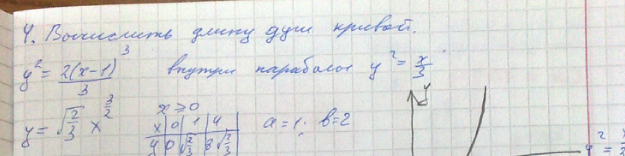 4. Вычислить длину дуги кривой.
y² = 2(x-1)³/3 внутри параболы y² = x/3
y = √(2/3) x^(3/2) x ≥ 0 a = 1; b = 2
x | 0 | 1 | 4
y | 0 | √(2/3) | 8√(2/3)
y